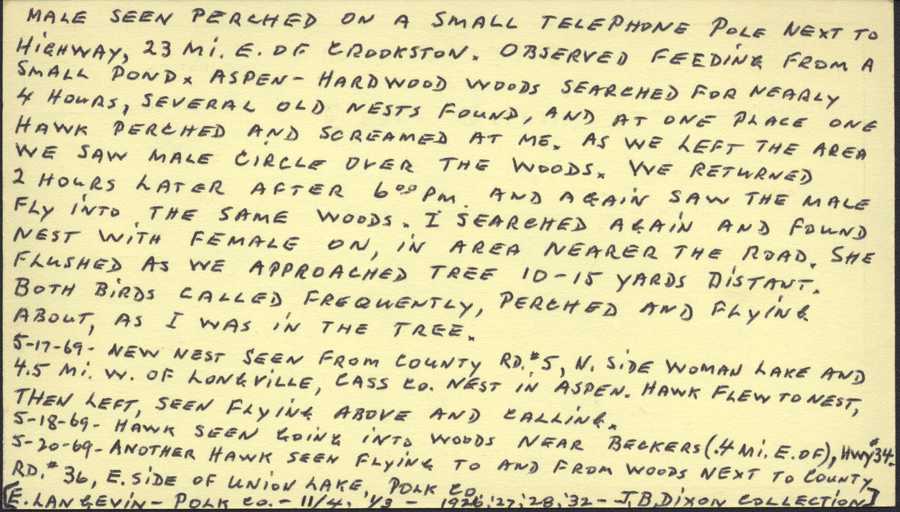 MALE SEEN PERCHED ON A SMALL TELEPHONE POLE NEXT TO
HIGHWAY, 23 MI. E. OF CROOKSTON. OBSERVED FEEDING FROM A
SMALL POND. ASPEN-HARDWOOD WOODS SEARCHED FOR NEARLY
4 HOURS, SEVERAL OLD NESTS FOUND, AND AT ONE PLACE ONE
HAWK PERCHED AND SCREAMED AT ME. AS WE LEFT THE AREA
WE SAW MALE CIRCLE OVER THE WOODS. WE RETURNED
2 HOURS LATER AFTER 6⁰⁰ PM. AND AGAIN SAW THE MALE
FLY INTO THE SAME WOODS. I SEARCHED AGAIN AND FOUND
NEST WITH FEMALE ON, IN AREA NEARER THE ROAD. SHE
FLUSHED AS WE APPROACHED TREE 10-15 YARDS DISTANT.
BOTH BIRDS CALLED FREQUENTLY, PERCHED AND FLYING
ABOUT, AS I WAS IN THE TREE.
5-17-69- NEW NEST SEEN FROM COUNTY RD.#5, N. SIDE WOMAN LAKE AND
4.5 MI. W. OF LONGVILLE, CASS CO. NEST IN ASPEN. HAWK FLEW TO NEST,
THEN LEFT, SEEN FLYING ABOVE AND CALLING.
5-18-69- HAWK SEEN GOING INTO WOODS NEAR BECKERS (.4 MI. E. OF), HWY#34.
5-20-69- ANOTHER HAWK SEEN FLYING TO AND FROM WOODS NEXT TO COUNTY
RD.#36, E. SIDE OF UNION LAKE, POLK CO.
[E. LANGEVIN- POLK CO.- 11/4, 1/3 - 1926,'27,'28,'32- J.B. DIXON COLLECTION]